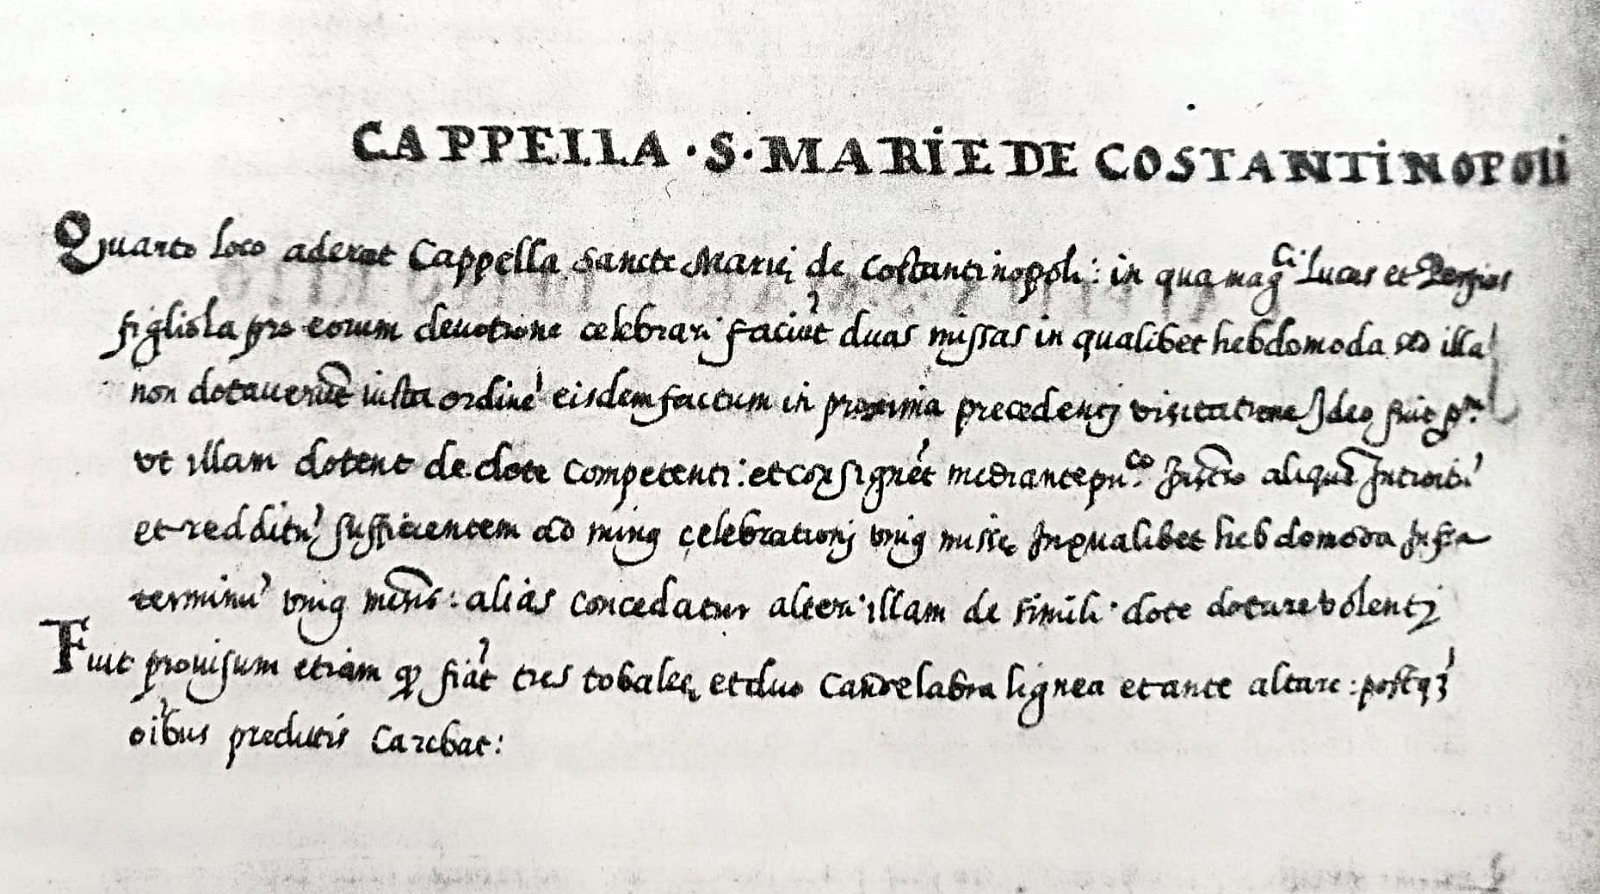 CAPPELLA · S · MARIE DE COSTANTINOPOLI
Quarto loco aderat Cappella Sancte Marię de Costantinopoli: in qua mag.ci Lucas et
figliola pro eorum deuotione celebrari faciūt duas missas in qualibet hebdomoda sed illā
non dotauerūt iusta ordinē eisdem factum in proxima precedenti visitatione Ideo fuit
vt illam dotent de dote competenti: et consignēt mediante pu.co aliquē Introitū
et redditū sufficientem ad celebrationj misse In qualibet hebdomoda Infra
terminū mēsis: alias concedatur alteri illam de simili dote dotare volentj
Fuit prouisum etiam qd fiāt tres tobalee, et duo candelabra lignea et ante altare: postq̃3
oībus predictis Carebat: